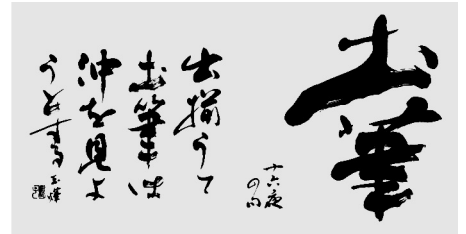 土筆
十六夜
の句
出揃うて
土筆は
沖を見よ
うと